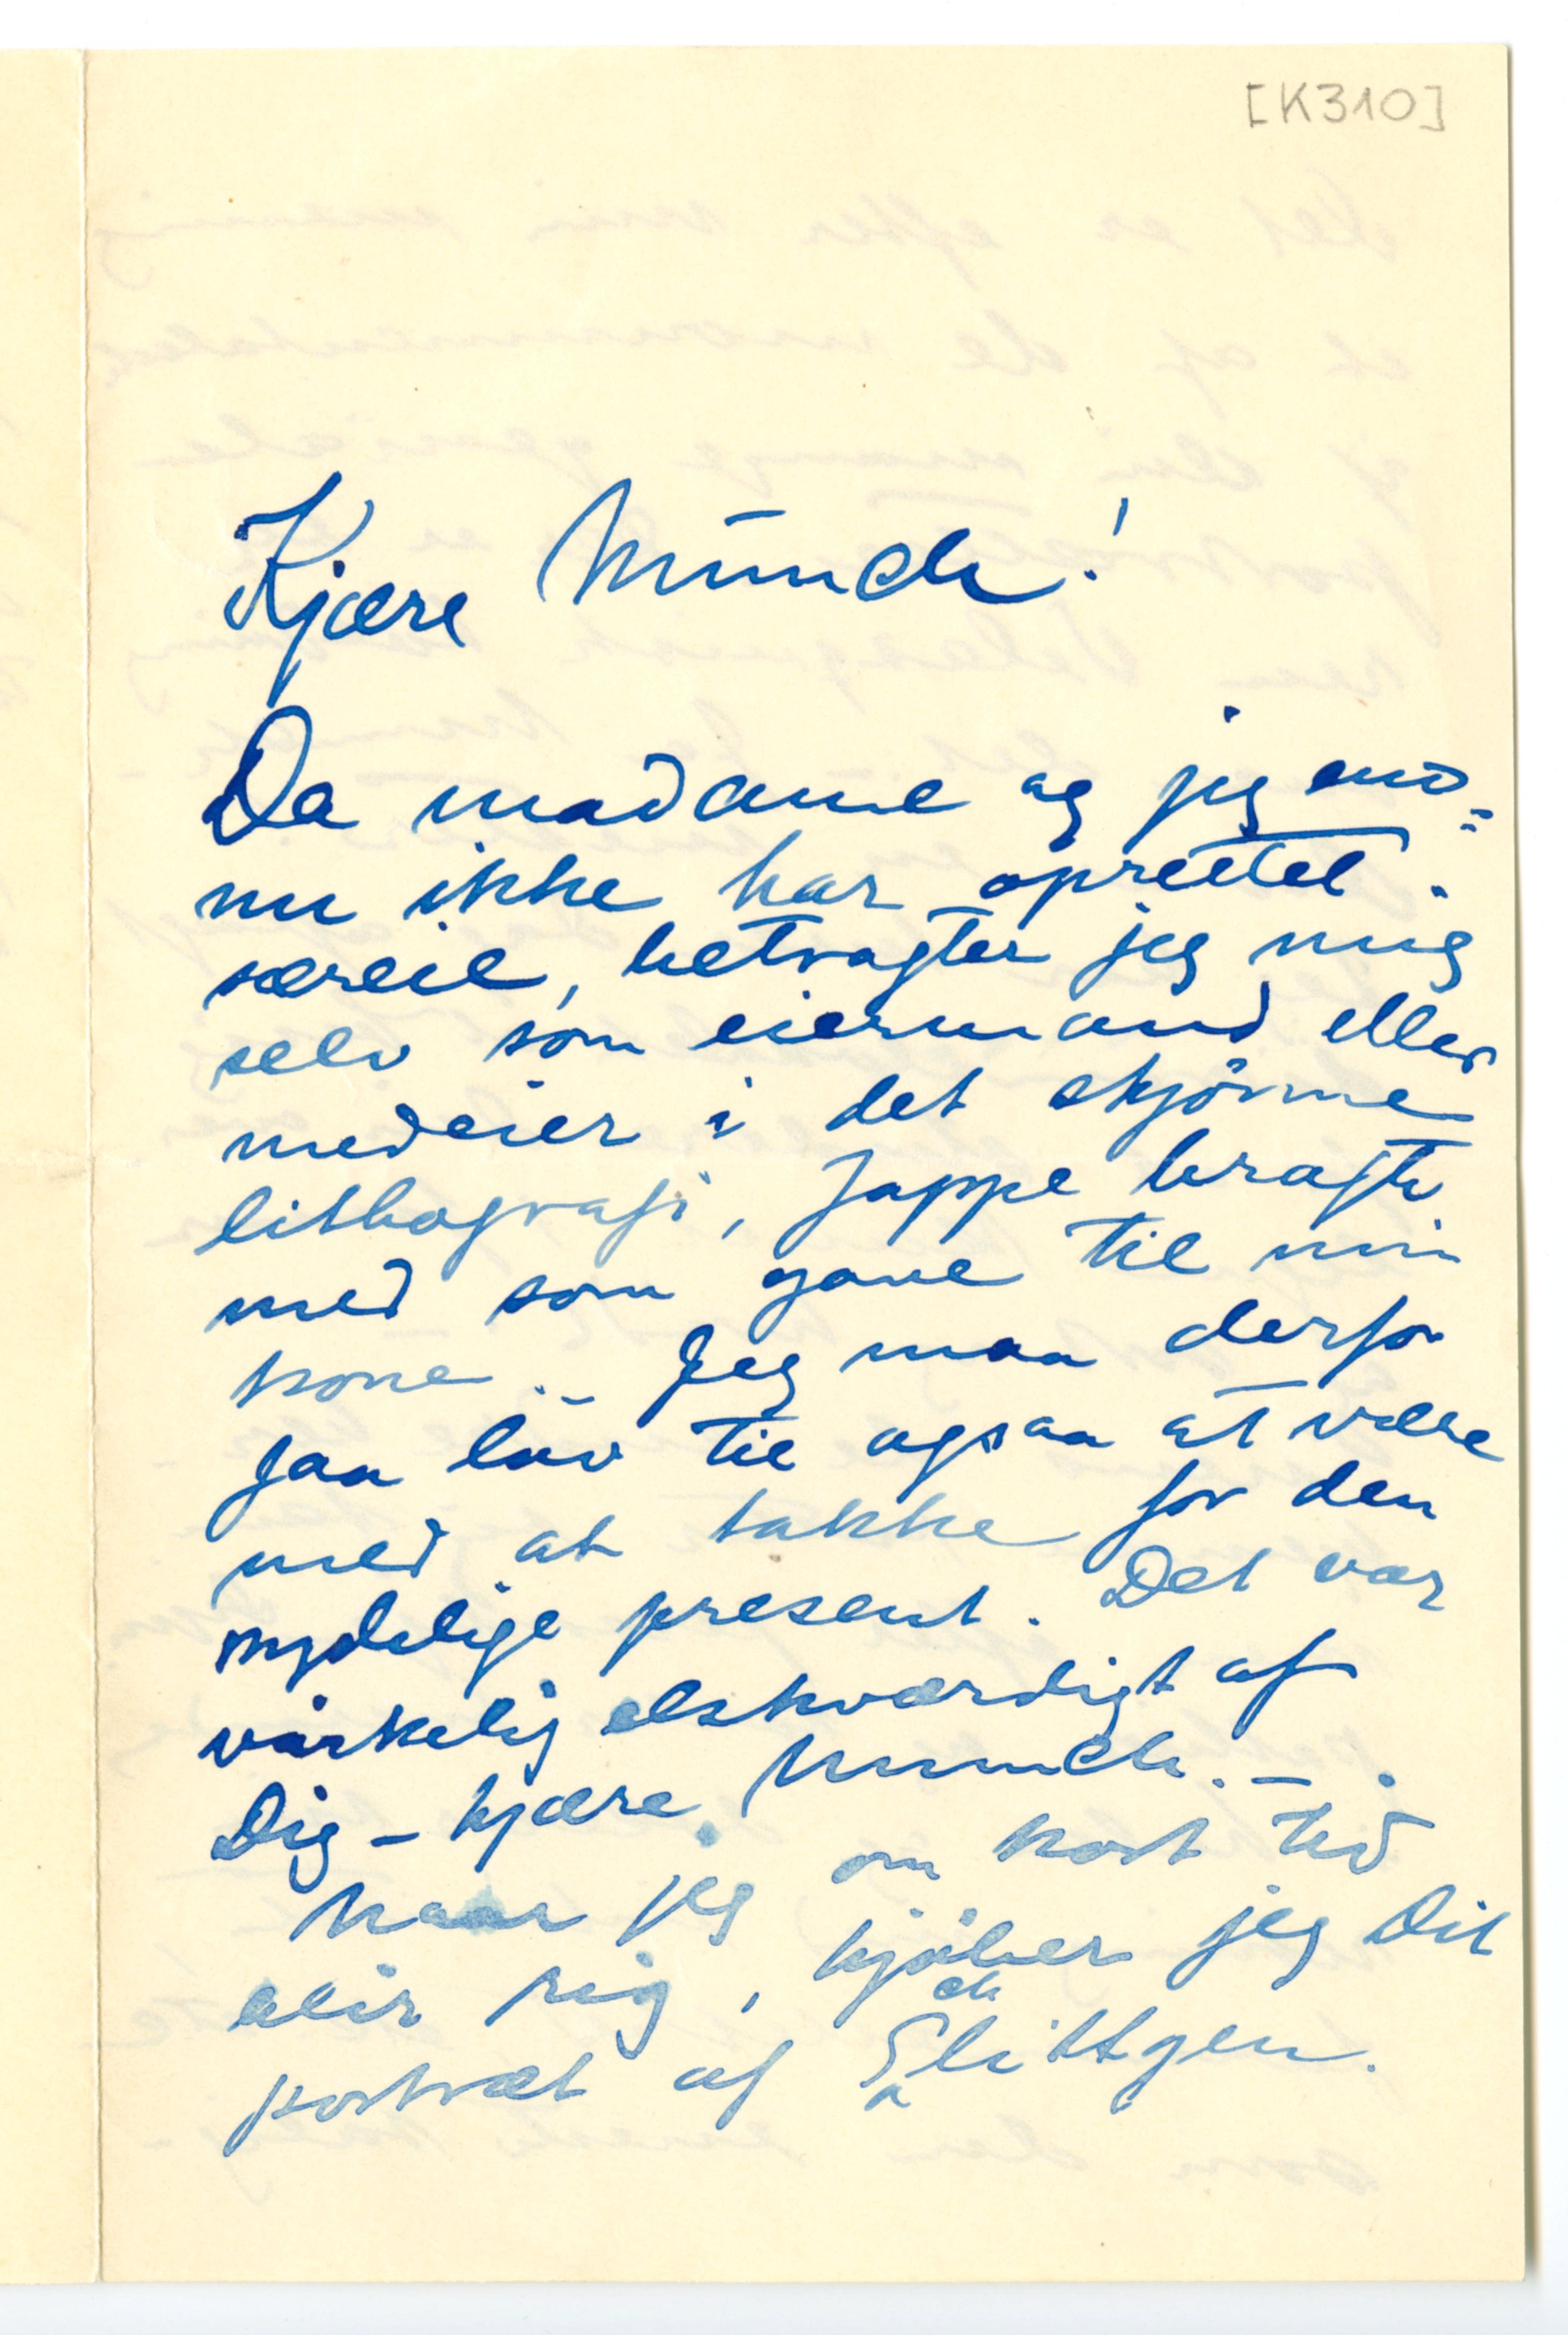 [K310]
Kjære Munch!
Da madame og jeg end=
nu ikke har oprettet
særeie, betragter jeg mig
selv som eiermand eller
medeier i det skjønne
lithografi, Jappe bragte
med som gave til min
kone. – Jeg maa derfor
faa lov til ogsaa at være
med at takke for den
nydelige present. Det var
virkelig elskværdigt af
Dig – kjære Munch. –
Naar jeg om kort tid
blir rig, kjøber jeg Dit
portræt af Schlittgen.